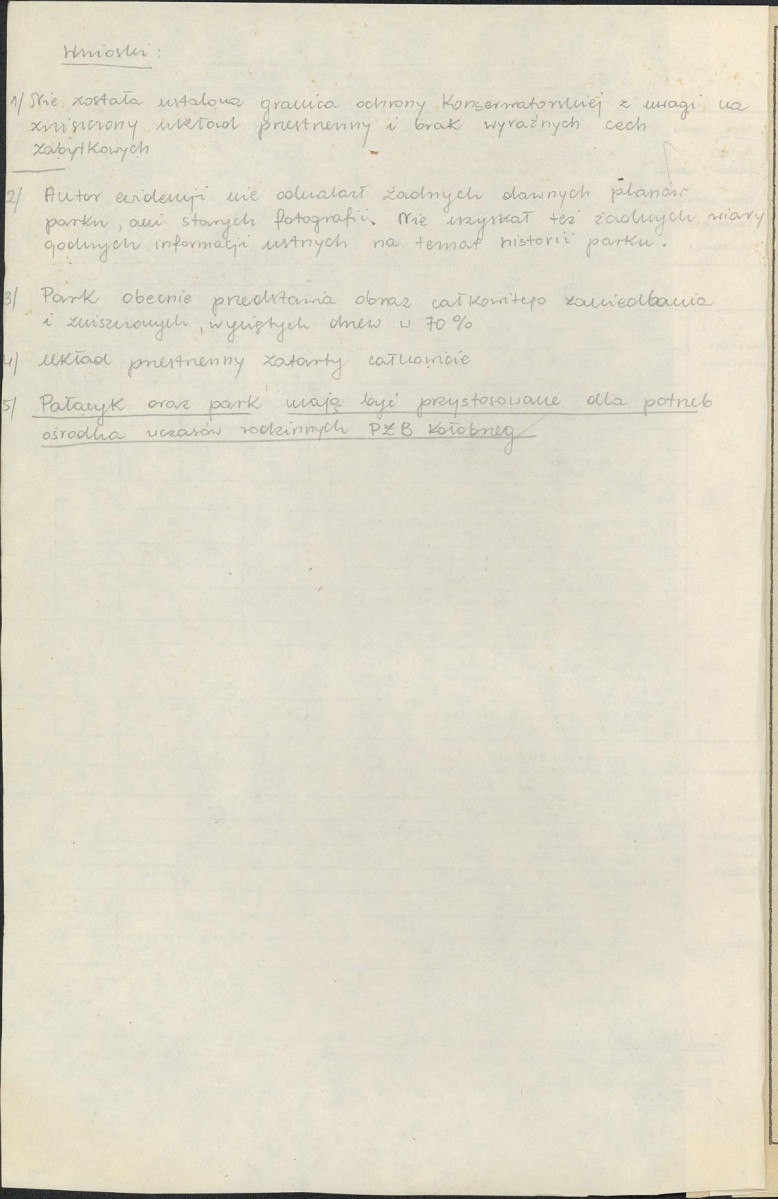 Wnioski:
1/ Nie została ustalona granica ochrony Konserwatorskiej z uwagi na
zniszczony układ przestrzenny i brak wyraźnych cech
zabytkowych
2/ Autor ewidencji nie odnalazł żadnych dawnych planów
parku, ani starych fotografii. Nie uzyskał też żadnych wiary
godnych informacji ustnych na temat historii parku.
3/ Park obecnie przedstawia obraz całkowitego zaniedbania
i zniszczonych, wyciętych drzew w 70%
4/ Układ przestrzenny zatarty całkowicie
5/ Pałacyk oraz park mają być przystosowane dla potrzeb
ośrodka wczasów rodzinnych PŻB Kołobrzeg